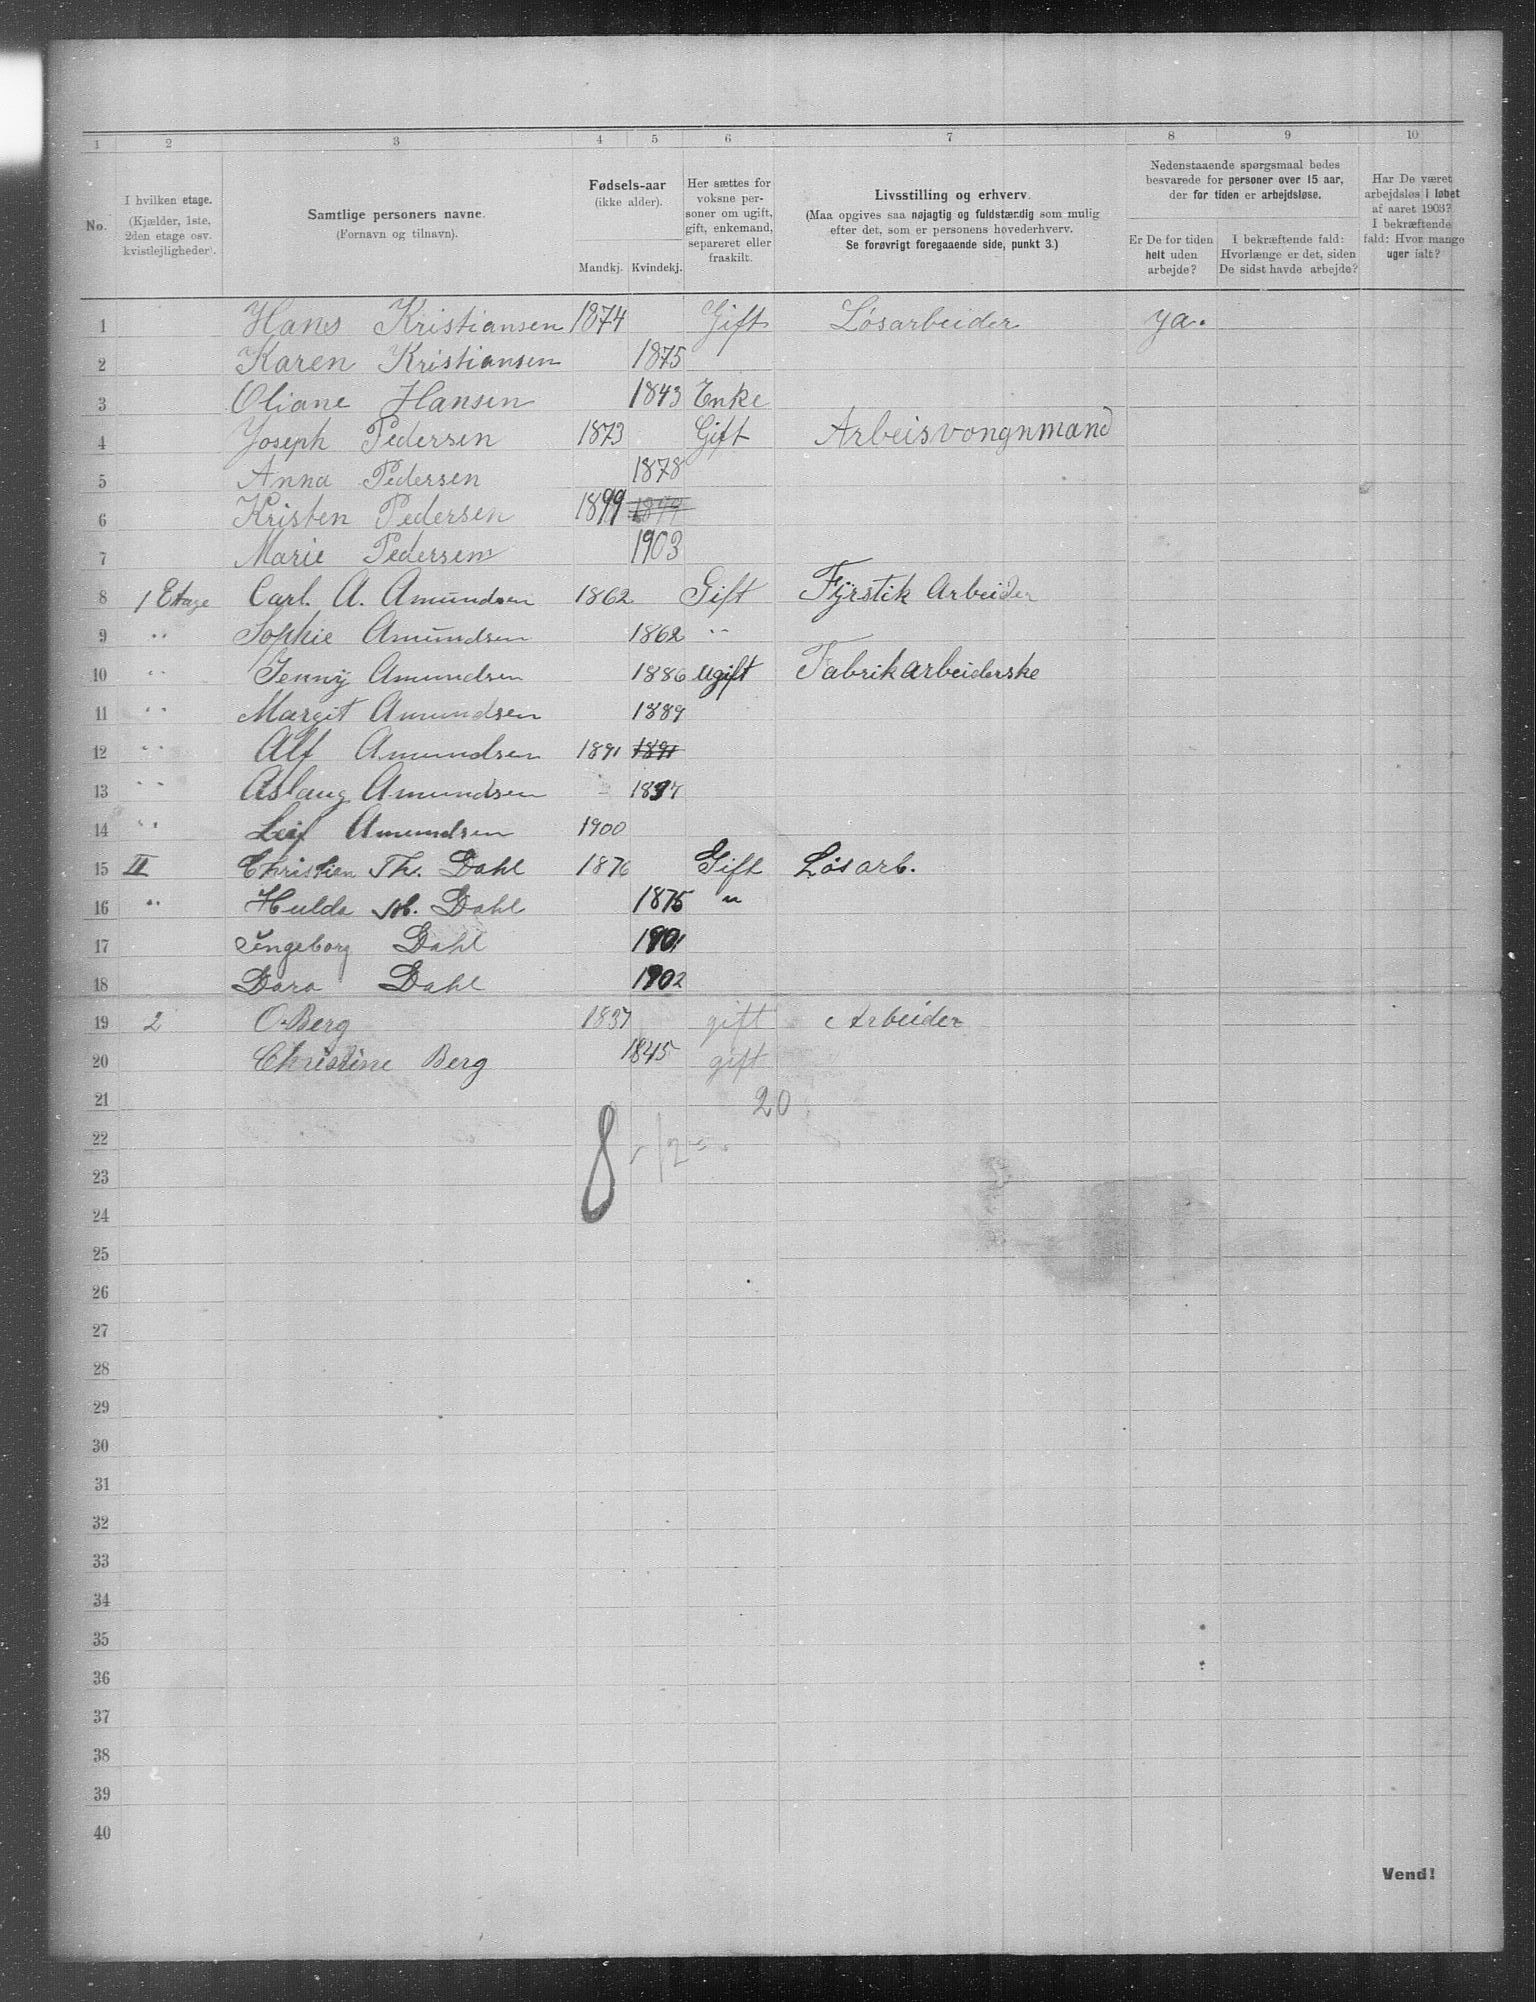 1 2 3 4 5 6 7 8 9 10
No.
I hvilken etage.
(Kjælder, 1ste,
2den etage osv.
kvistlejligheder).
Samtlige personers navne.
(Fornavn og tilnavn).
Fødsels-aar
(ikke alder).
Mandkj. Kvindekj.
Her sættes for
voksne per-
soner om ugift,
gift, enkemand,
separeret eller
fraskilt.
Livsstilling og erhverv.
(Maa opgives saa nøjagtig og fuldstærdig som mulig
efter det, som er personens hovederhverv.
Se forøvrigt foregaaende side, punkt 3.)
Nedenstaaende spørgsmaal bedes
besvarede for personer over 15 aar,
der for tiden er arbejdsløse.
Er De for tiden
helt uden
arbejde?
I bekræftende fald:
Hvorlænge er det, siden
De sidst havde arbejde?
Har De været
arbejdsløs i løbet
af aaret 1903?
I bekræftende
fald: Hvor mange
uger ialt?
1 Hans Kristiansen 1874 Gift Løsarbeider ya.
2 Karen Kristiansen 1875
3 Oliane Hansen 1843 Enke
4 Joseph Pedersen 1873 Gift Arbeisvongnmand
5 Anna Pedersen 1878
6 Kristen Pedersen 1899 1899
7 Marie Pedersen 1903
8 1 Etage Carl. A. Amundsen 1862 Gift Fÿrstik Arbeider
9 " Sophie Amundsen 1862 "
10 " Jenny Amundsen 1886 ugift Fabrikarbeiderske
11 " Margit Amundsen 1889
12 " Alf Amundsen 1891 1891
13 " Aslaug Amundsen 1897
14 " Leif Amundsen 1900
15 II Christian Th. Dahl 1876 Gift Løsarb.
16 " Hulda M. Dahl 1875 "
17 Ingeborg Dahl 1901
18 Dora Dahl 1902
19 2 O. Berg 1837 gift Arbeider
20 Christine Berg 1845 gift
21 20
22 8
23
24
25
26
27
28
29
30
31
32
33
34
35
36
37
38
39
40
Vend!